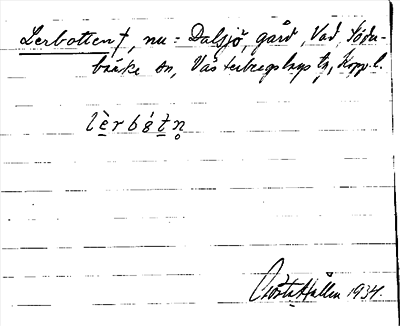 Lerbotten †, nu = Dalsjö, gård, Vad, Söder-
bärke sn, Västerbergslags tg, Kopp. l.
lèrbótn̥
Gösta Hallén 1934.